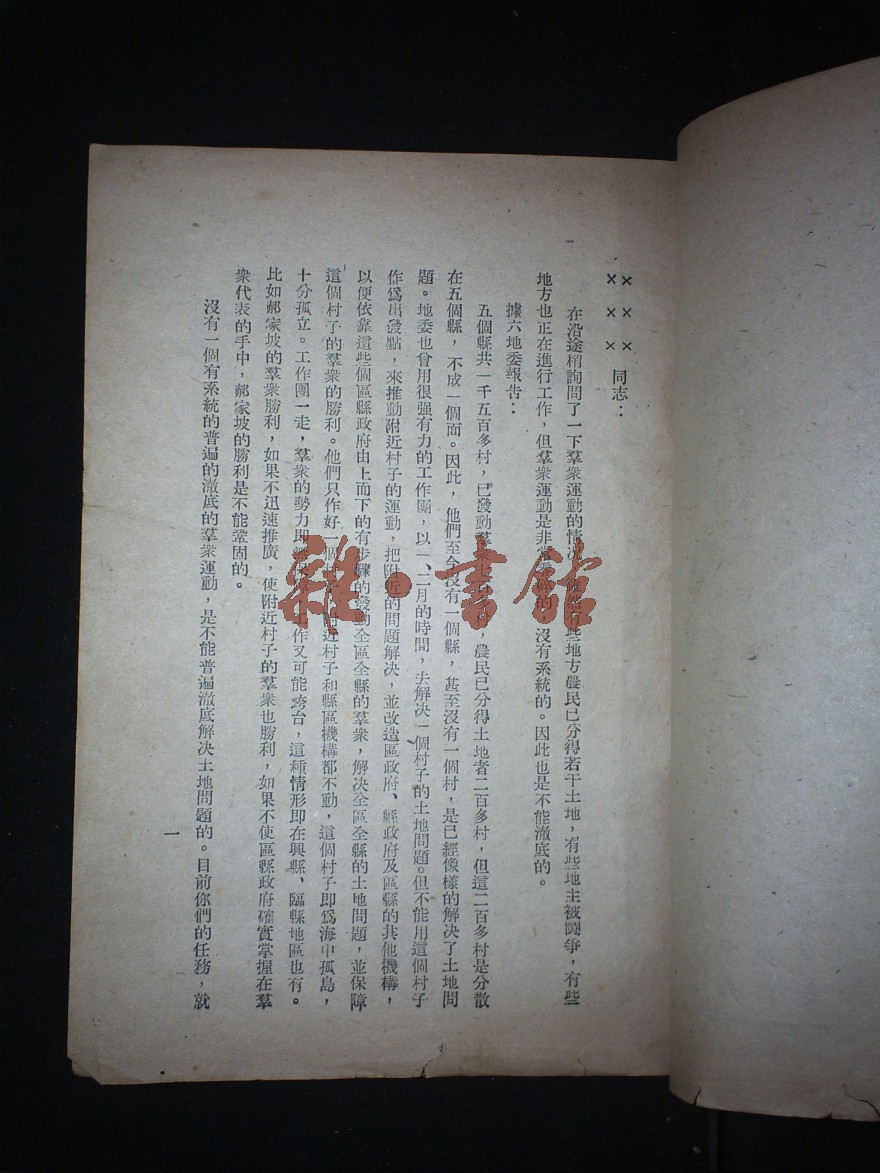 ×××
×××同志：
在沿途稍詢問了一下羣衆運動的情况，雖然有些地方農民已分得若干土地，有些地主被鬭爭，有些
地方也正在進行工作，但羣衆運動是非常 的，沒有系統的。因此也是不能澈底的。
據六地委報吿：
五個縣共一千五百多村，已發動羣衆 百多村，農民已分得土地者二百多村，但這二百多村是分散
在五個縣，不成一個面。因此，他們至今沒有一個縣，甚至沒有一個村，是已經像樣的解决了土地問
題。地委也曾用很强有力的工作團，以一、二月的時間，去解决一個村子的土地問題。但不能用這個村子
作爲出發點，來推動附近村子的運動，把附近的問題解决，並改造區政府、縣政府及區縣的其他機構，
以便依靠這些個區縣政府由上而下的有步驟的發動全區全縣的羣衆，解决全區全縣的土地問題，並保障
這個村子的羣衆的勝利。他們只作好一個村子，附近村子和縣區機構都不動，這個村子即爲海中孤島，
十分孤立。工作團一走，羣衆的勢力即 ，工作又可能垮台，這種情形即在興縣、臨縣地區也有。
比如郝家坡的羣衆勝利，如果不迅速推廣，使附近村子的羣衆也勝利，如果不使區縣政府確實掌握在羣
衆代表的手中，郝家坡的勝利是不能鞏固的。
沒有一個有系統的普遍的澈底的羣衆運動，是不能普遍澈底解决土地問題的。目前你們的任務，就
一
雜·書館